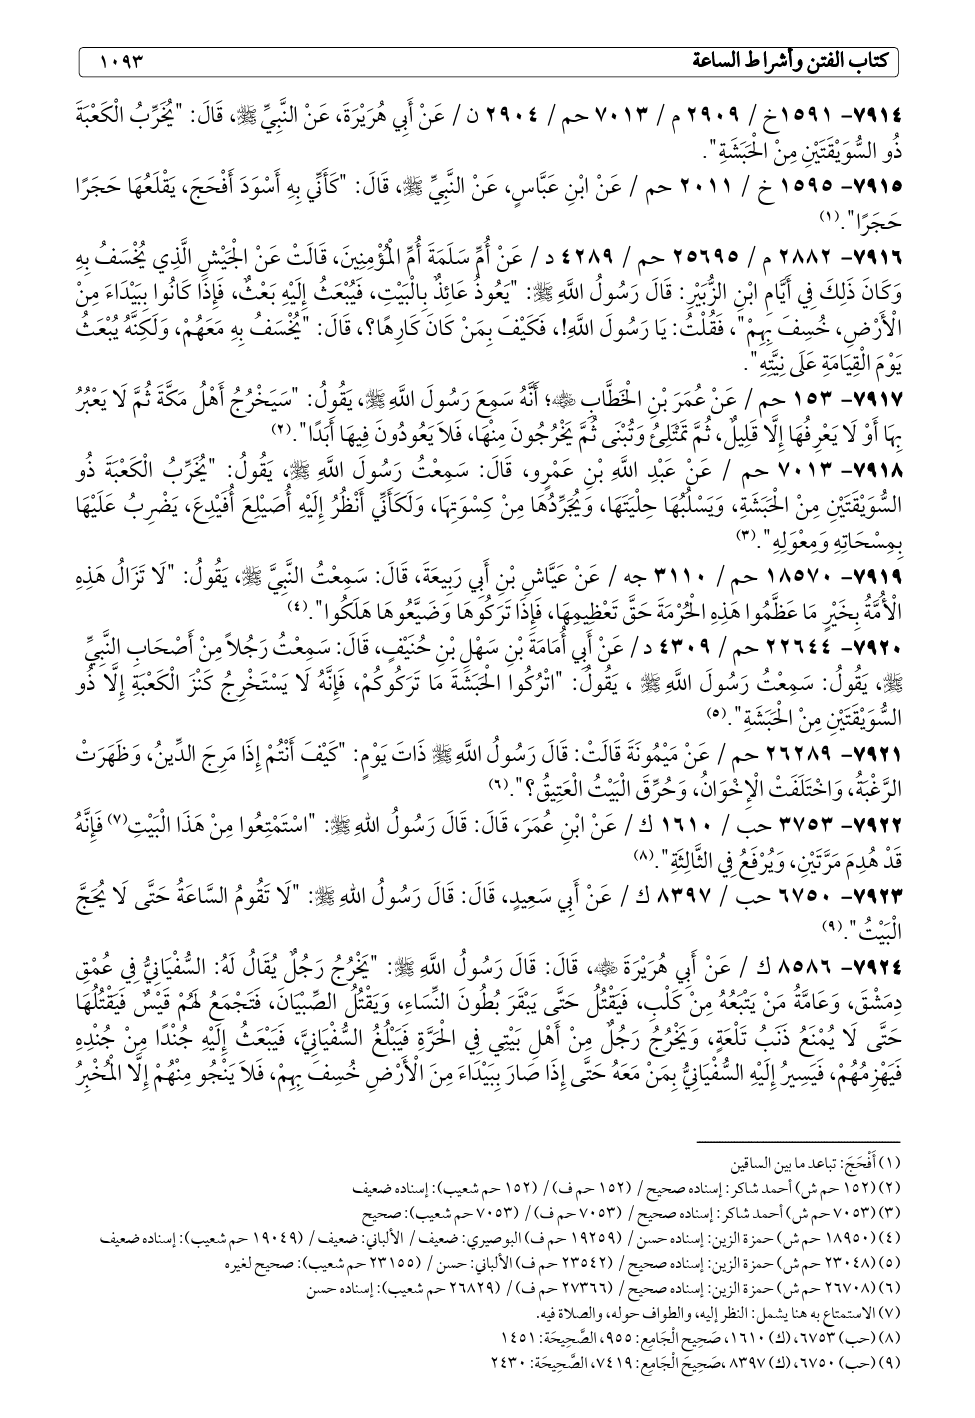 كتاب الفتن وأشراط الساعة ١٠٩٣
٧٩١٤- ١٥٩١خ / ٢٩٠٩ م / ٧٠١٣ حم / ٢٩٠٤ ن / عَنْ أَبِي هُرَيْرَةَ، عَنْ النَّبِيِّ ﷺ، قَالَ: "يُخَرِّبُ الْكَعْبَةَ
ذُو السُّوَيْقَتَيْنِ مِنْ الْحَبَشَةِ".
٧٩١٥- ١٥٩٥ خ / ٢٠١١ حم / عَنْ ابْنِ عَبَّاسٍ، عَنْ النَّبِيِّ ﷺ، قَالَ: "كَأَنِّي بِهِ أَسْوَدَ أَفْحَجَ، يَقْلَعُهَا حَجَرًا
حَجَرًا".(١)
٧٩١٦- ٢٨٨٢ م / ٢٥٦٩٥ حم / ٤٢٨٩ د / عَنْ أُمِّ سَلَمَةَ أُمِّ الْمُؤْمِنِينَ، قَالَتْ عَنْ الْجَيْشِ الَّذِي يُخْسَفُ بِهِ
وَكَانَ ذَلِكَ فِي أَيَّامِ ابْنِ الزُّبَيْرِ: قَالَ رَسُولُ اللَّهِ ﷺ: "يَعُوذُ عَائِذٌ بِالْبَيْتِ، فَيُبْعَثُ إِلَيْهِ بَعْثٌ، فَإِذَا كَانُوا بِبَيْدَاءَ مِنْ
الْأَرْضِ، خُسِفَ بِهِمْ"، فَقُلْتُ: يَا رَسُولَ اللَّهِ!، فَكَيْفَ بِمَنْ كَانَ كَارِهًا؟، قَالَ: "يُخْسَفُ بِهِ مَعَهُمْ، وَلَكِنَّهُ يُبْعَثُ
يَوْمَ الْقِيَامَةِ عَلَى نِيَّتِهِ".
٧٩١٧- ١٥٣ حم / عَنْ عُمَرَ بْنِ الْخَطَّابِ ﵁؛ أَنَّهُ سَمِعَ رَسُولَ اللَّهِ ﷺ، يَقُولُ: "سَيَخْرُجُ أَهْلُ مَكَّةَ ثُمَّ لَا يَعْبُرُ
بِهَا أَوْ لَا يَعْرِفُهَا إِلَّا قَلِيلٌ، ثُمَّ تَمْتَلِئُ وَتُبْنَى ثُمَّ يَخْرُجُونَ مِنْهَا، فَلَا يَعُودُونَ فِيهَا أَبَدًا".(٢)
٧٩١٨- ٧٠١٣ حم / عَنْ عَبْدِ اللَّهِ بْنِ عَمْرٍو، قَالَ: سَمِعْتُ رَسُولَ اللَّهِ ﷺ، يَقُولُ: "يُخَرِّبُ الْكَعْبَةَ ذُو
السُّوَيْقَتَيْنِ مِنْ الْحَبَشَةِ، وَيَسْلُبُهَا حِلْيَتَهَا، وَيُجَرِّدُهَا مِنْ كِسْوَتِهَا، وَلَكَأَنِّي أَنْظُرُ إِلَيْهِ أُصَيْلِعَ أُفَيْدِعَ، يَضْرِبُ عَلَيْهَا
بِمِسْحَاتِهِ وَمِعْوَلِهِ".(٣)
٧٩١٩- ١٨٥٧٠ حم / ٣١١٠ جه / عَنْ عَيَّاشِ بْنِ أَبِي رَبِيعَةَ، قَالَ: سَمِعْتُ النَّبِيَّ ﷺ، يَقُولُ: "لَا تَزَالُ هَذِهِ
الْأُمَّةُ بِخَيْرٍ مَا عَظَّمُوا هَذِهِ الْحُرْمَةَ حَقَّ تَعْظِيمِهَا، فَإِذَا تَرَكُوهَا وَضَيَّعُوهَا هَلَكُوا".(٤)
٧٩٢٠- ٢٢٦٤٤ حم / ٤٣٠٩ د/ عَنْ أَبِي أُمَامَةَ بْنِ سَهْلِ بْنِ حُنَيْفٍ، قَالَ: سَمِعْتُ رَجُلاً مِنْ أَصْحَابِ النَّبِيِّ
ﷺ، يَقُولُ: سَمِعْتُ رَسُولَ اللَّهِ ﷺ ، يَقُولُ: "اتْرُكُوا الْحَبَشَةَ مَا تَرَكُوكُمْ، فَإِنَّهُ لَا يَسْتَخْرِجُ كَنْزَ الْكَعْبَةِ إِلَّا ذُو
السُّوَيْقَتَيْنِ مِنْ الْحَبَشَةِ".(٥)
٧٩٢١- ٢٦٢٨٩ حم / عَنْ مَيْمُونَةَ قَالَتْ: قَالَ رَسُولُ اللَّهِ ﷺ ذَاتَ يَوْمٍ: "كَيْفَ أَنْتُمْ إِذَا مَرِجَ الدِّينُ، وَظَهَرَتْ
الرَّغْبَةُ، وَاخْتَلَفَتْ الْإِخْوَانُ، وَحُرِّقَ الْبَيْتُ الْعَتِيقُ؟".(٦)
٧٩٢٢- ٣٧٥٣ حب / ١٦١٠ ك / عَنْ ابْنِ عُمَرَ، قَالَ: قَالَ رَسُولُ اللهِ ﷺ: "اسْتَمْتِعُوا مِنْ هَذَا الْبَيْتِ(٧) فَإِنَّهُ
قَدْ هُدِمَ مَرَّتَيْنِ، وَيُرْفَعُ فِي الثَّالِثَةِ".(٨)
٧٩٢٣- ٦٧٥٠ حب / ٨٣٩٧ ك / عَنْ أَبِي سَعِيدٍ، قَالَ: قَالَ رَسُولُ اللهِ ﷺ: "لَا تَقُومُ السَّاعَةُ حَتَّى لَا يُحَجَّ
الْبَيْتُ".(٩)
٧٩٢٤- ٨٥٨٦ ك / عَنْ أَبِي هُرَيْرَةَ ﵁، قَالَ: قَالَ رَسُولُ اللَّهِ ﷺ: "يَخْرُجُ رَجُلٌ يُقَالُ لَهُ: السُّفْيَانِيُّ فِي عُمْقِ
دِمَشْقَ، وَعَامَّةُ مَنْ يَتَّبِعُهُ مِنْ كَلْبٍ، فَيَقْتُلُ حَتَّى يَبْقَرَ بُطُونَ النِّسَاءِ، وَيَقْتُلُ الصِّبْيَانَ، فَتَجْمَعُ لَهُمْ قَيْسٌ فَيَقْتُلُهَا
حَتَّى لَا يُمْنَعُ ذَنَبُ تَلْعَةٍ، وَيَخْرُجُ رَجُلٌ مِنْ أَهْلِ بَيْتِي فِي الْحَرَّةِ فَيَبْلُغُ السُّفْيَانِيَّ، فَيَبْعَثُ إِلَيْهِ جُنْدًا مِنْ جُنْدِهِ
فَيَهْزِمُهُمْ، فَيَسِيرُ إِلَيْهِ السُّفْيَانِيُّ بِمَنْ مَعَهُ حَتَّى إِذَا صَارَ بِبَيْدَاءَ مِنَ الْأَرْضِ خُسِفَ بِهِمْ، فَلَا يَنْجُو مِنْهُمْ إِلَّا الْمُخْبِرُ
(١) أَفْحَجَ: تباعد ما بين الساقين
(٢) (١٥٢ حم ش) أحمد شاكر: إسناده صحيح / (١٥٢ حم ف) / (١٥٢ حم شعيب): إسناده ضعيف
(٣) (٧٠٥٣ حم ش) أحمد شاكر: إسناده صحيح / (٧٠٥٣ حم ف) / (٧٠٥٣ حم شعيب): صحيح
(٤) (١٨٩٥٠ حم ش) حمزة الزين: إسناده حسن / (١٩٢٥٩ حم ف) البوصيري: ضعيف / الألباني: ضعيف / (١٩٠٤٩ حم شعيب): إسناده ضعيف
(٥) (٢٣٠٤٨ حم ش) حمزة الزين: إسناده صحيح / (٢٣٥٤٢ حم ف) الألباني: حسن / (٢٣١٥٥ حم شعيب): صحيح لغيره
(٦) (٢٦٧٠٨ حم ش) حمزة الزين: إسناده صحيح / (٢٧٣٦٦ حم ف) / (٢٦٨٢٩ حم شعيب): إسناده حسن
(٧) الاستمتاع به هنا يشمل: النظر إليه، والطواف حوله، والصلاة فيه.
(٨) (حب) ٦٧٥٣، (ك) ١٦١٠، صَحِيح الْجَامِع: ٩٥٥، الصَّحِيحَة: ١٤٥١
(٩) (حب) ٦٧٥٠، (ك) ٨٣٩٧ ،صَحِيحَ الْجَامِع: ٧٤١٩، الصَّحِيحَة: ٢٤٣٠